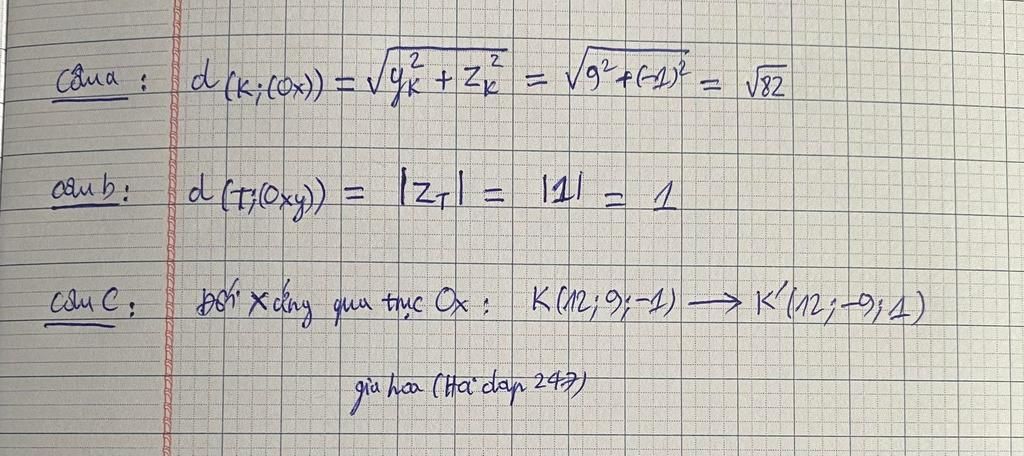 Câu a : d(K;(Ox)) = √(y_K² + z_K²) = √(9² + (-1)²) = √82
câu b : d(T;(Oxy)) = |z_T| = |1| = 1
câu C : Đối xứng qua trục Ox : K(12;9;-1) → K'(12;-9;1)
gia hoa (Hoi dap 247)